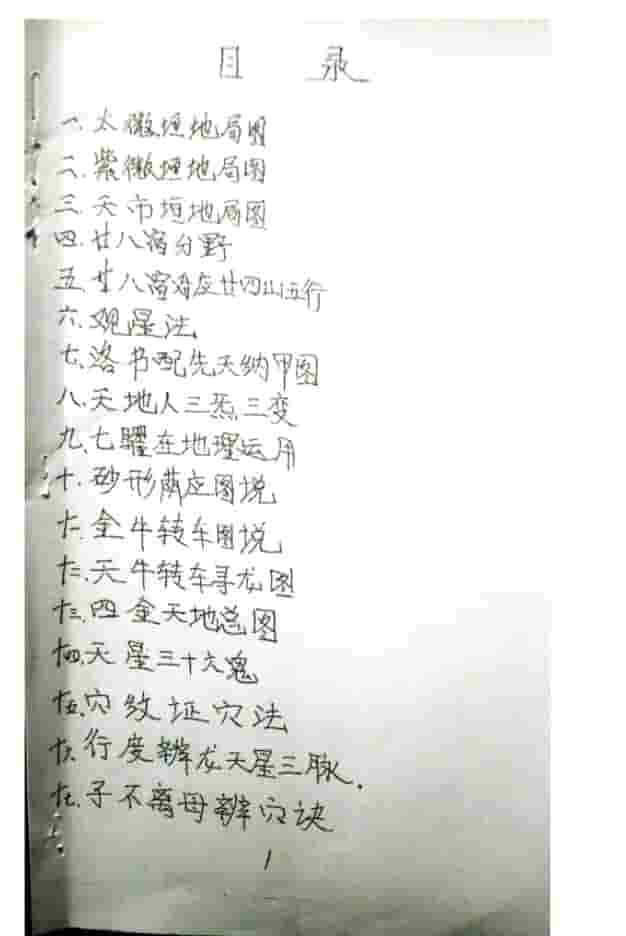 目 录
一、太微垣地局图
二、紫微垣地局图
三、天市垣地局图
四、廿八宿分野
五、廿八宿对应廿四山五行
六、观星法
七、洛书配先天纳甲图
八、天地人三炁三变
九、七曜在地理运用
十、砂形荫应图说
十一、金牛转车图说
十二、天牛转车寻龙图
十三、四金天地总图
十四、天星三十六鬼
十五、穴纹证穴法
十六、行度辨龙天星三脉.
十七、子不离母辨穴诀
1